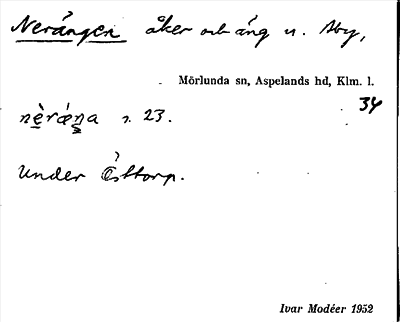 Nerängen åker och äng n. Aby,
Mörlunda sn, Aspelands hd, Klm. l.
34
nèrǽŋa r. 23.
Under Östtorp.
Ivar Modéer 1952